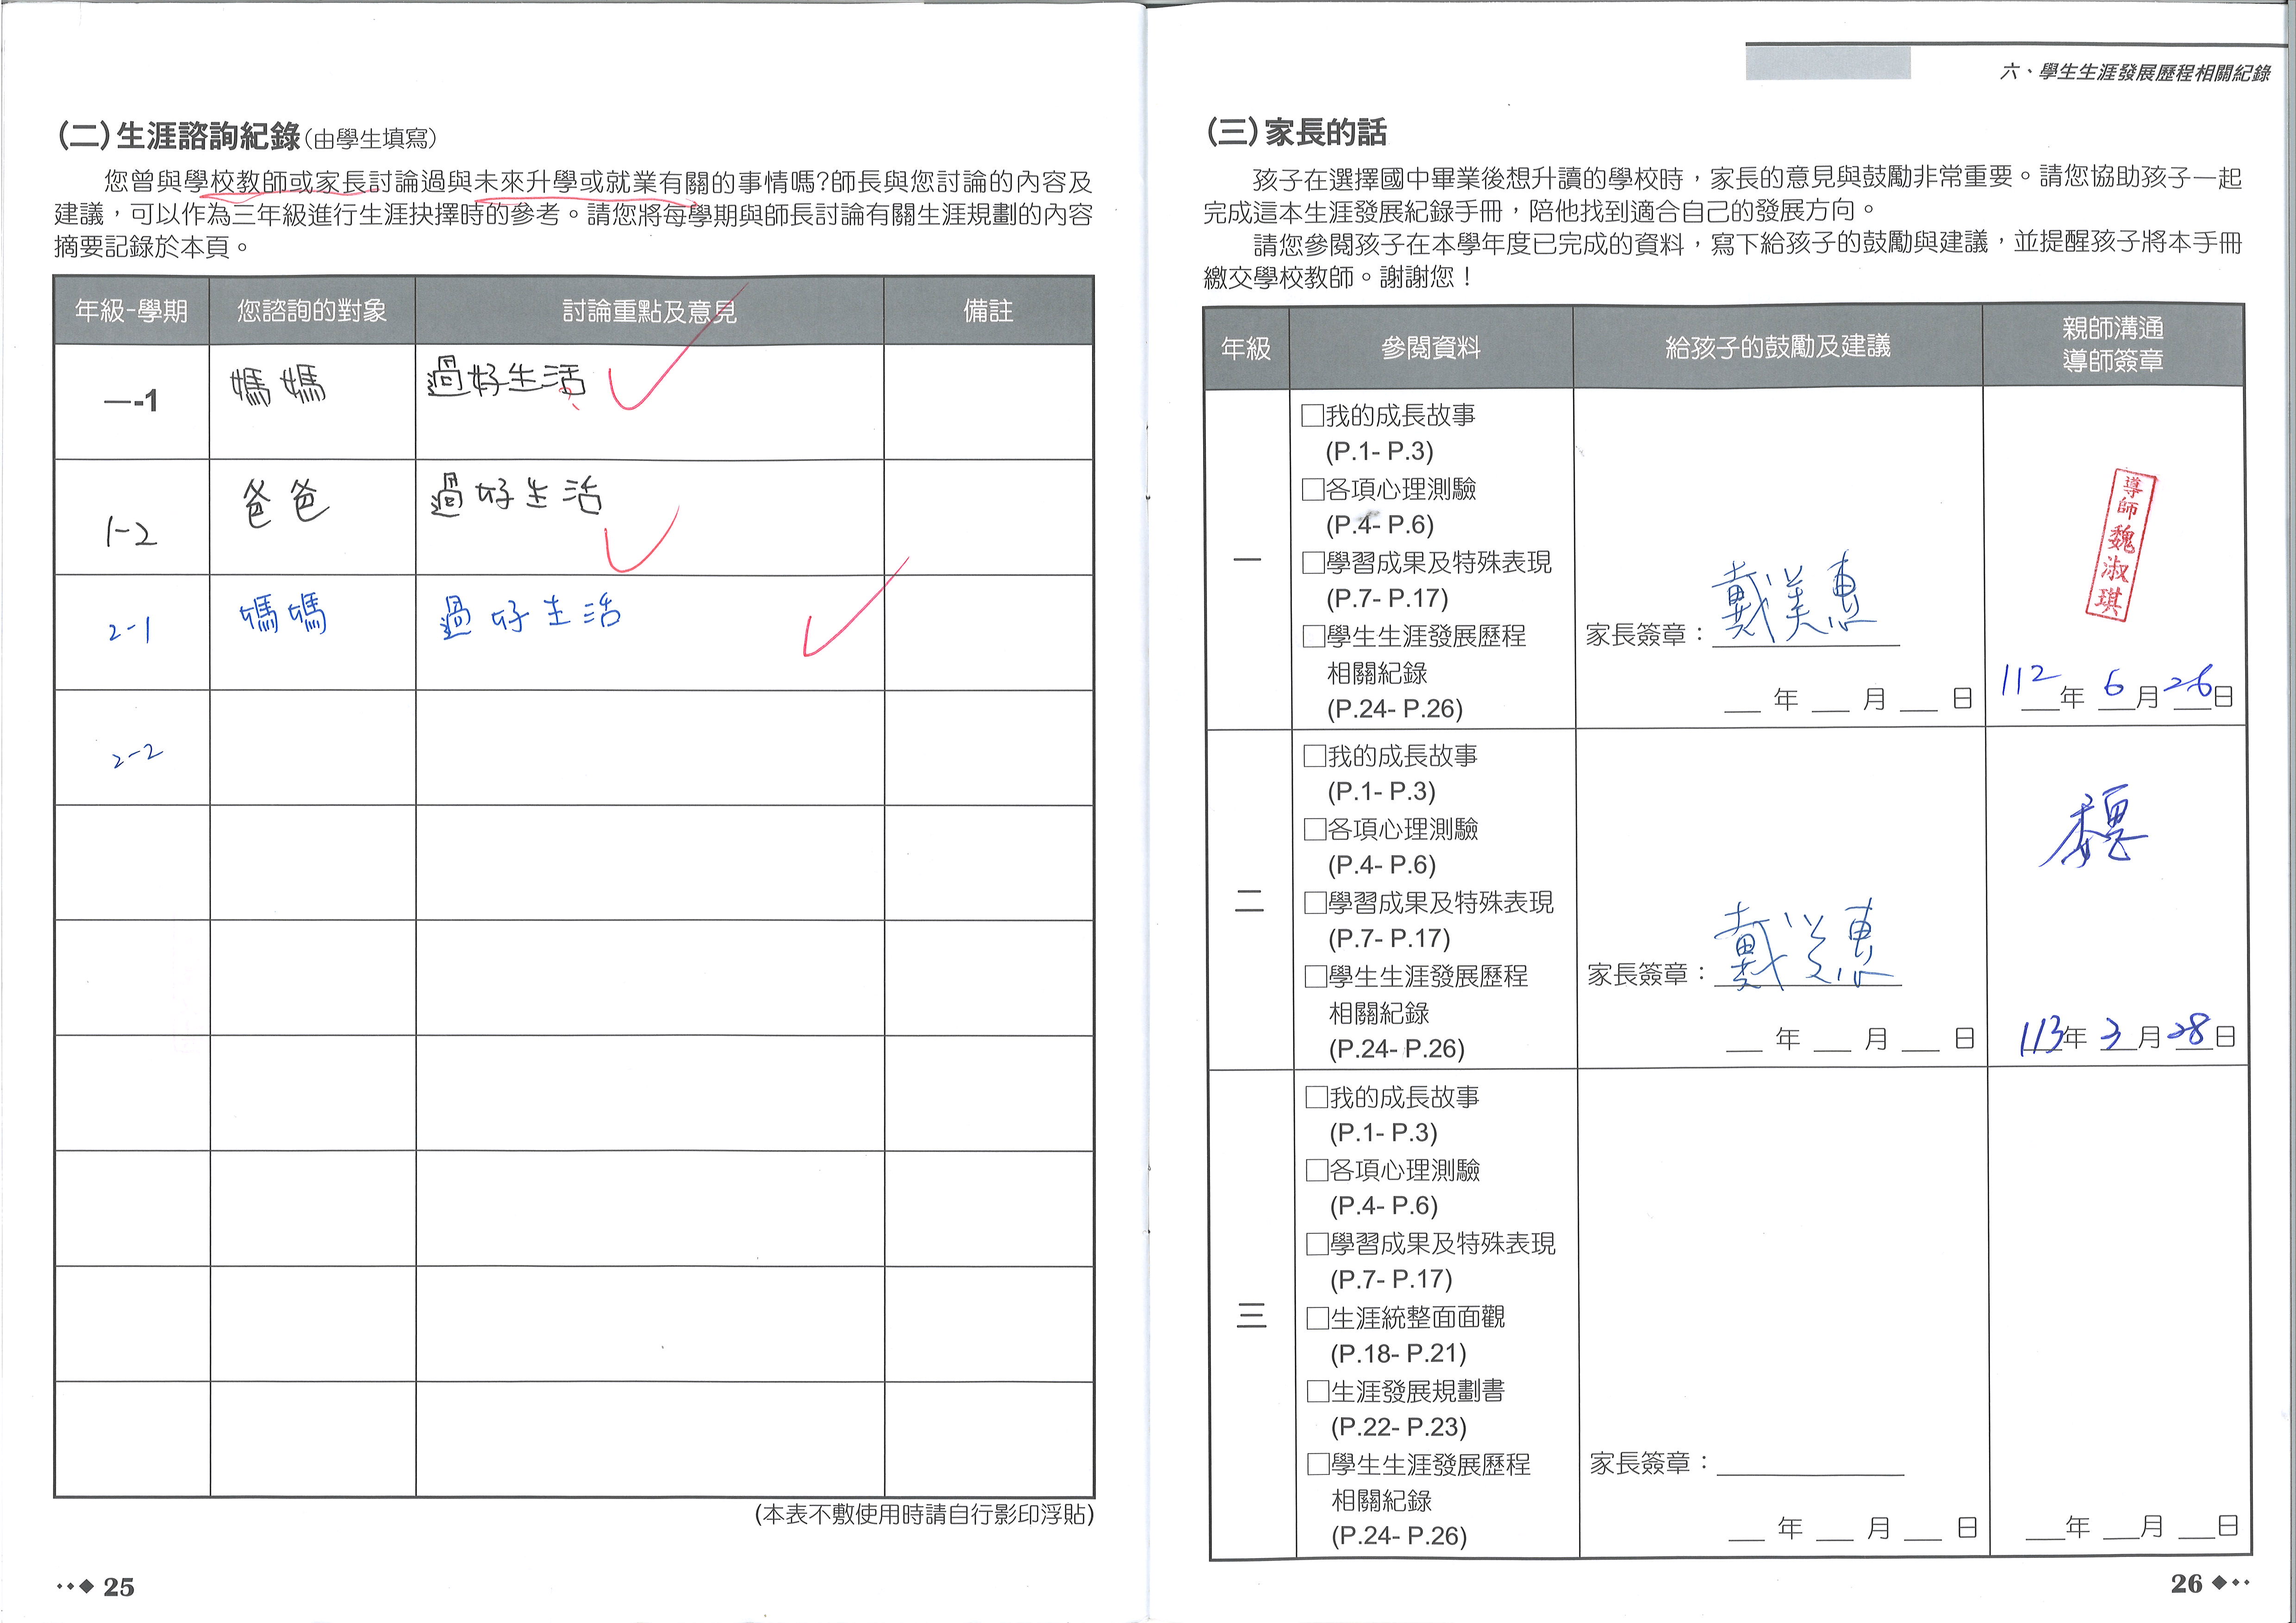 (二)生涯諮詢紀錄(由學生填寫)
您曾與學校教師或家長討論過與未來升學或就業有關的事情嗎?師長與您討論的內容及
建議，可以作為三年級進行生涯抉擇時的參考。請您將每學期與師長討論有關生涯規劃的內容
摘要記錄於本頁。
年級-學期 您諮詢的對象 討論重點及意見 備註
一-1 媽媽 過好生活
1-2 爸爸 過好生活
2-1 媽媽 過好生活
2-2
(本表不敷使用時請自行影印浮貼)
25
六、學生生涯發展歷程相關紀錄
(三)家長的話
孩子在選擇國中畢業後想升讀的學校時，家長的意見與鼓勵非常重要。請您協助孩子一起
完成這本生涯發展紀錄手冊，陪他找到適合自己的發展方向。
請您參閱孩子在本學年度已完成的資料，寫下給孩子的鼓勵與建議，並提醒孩子將本手冊
繳交學校教師。謝謝您！
年級 參閱資料 給孩子的鼓勵及建議 親師溝通
導師簽章
一
□我的成長故事
(P.1- P.3)
□各項心理測驗
(P.4- P.6)
□學習成果及特殊表現
(P.7- P.17)
□學生生涯發展歷程
相關紀錄
(P.24- P.26)
家長簽章：戴美惠
年 月 日
導師魏淑琪
112年 6月 26日
二
□我的成長故事
(P.1- P.3)
□各項心理測驗
(P.4- P.6)
□學習成果及特殊表現
(P.7- P.17)
□學生生涯發展歷程
相關紀錄
(P.24- P.26)
家長簽章：戴美惠
年 月 日
魏
113年 3月 28日
三
□我的成長故事
(P.1- P.3)
□各項心理測驗
(P.4- P.6)
□學習成果及特殊表現
(P.7- P.17)
□生涯統整面面觀
(P.18- P.21)
□生涯發展規劃書
(P.22- P.23)
□學生生涯發展歷程
相關紀錄
(P.24- P.26)
家長簽章：
年 月 日
年 月 日
26